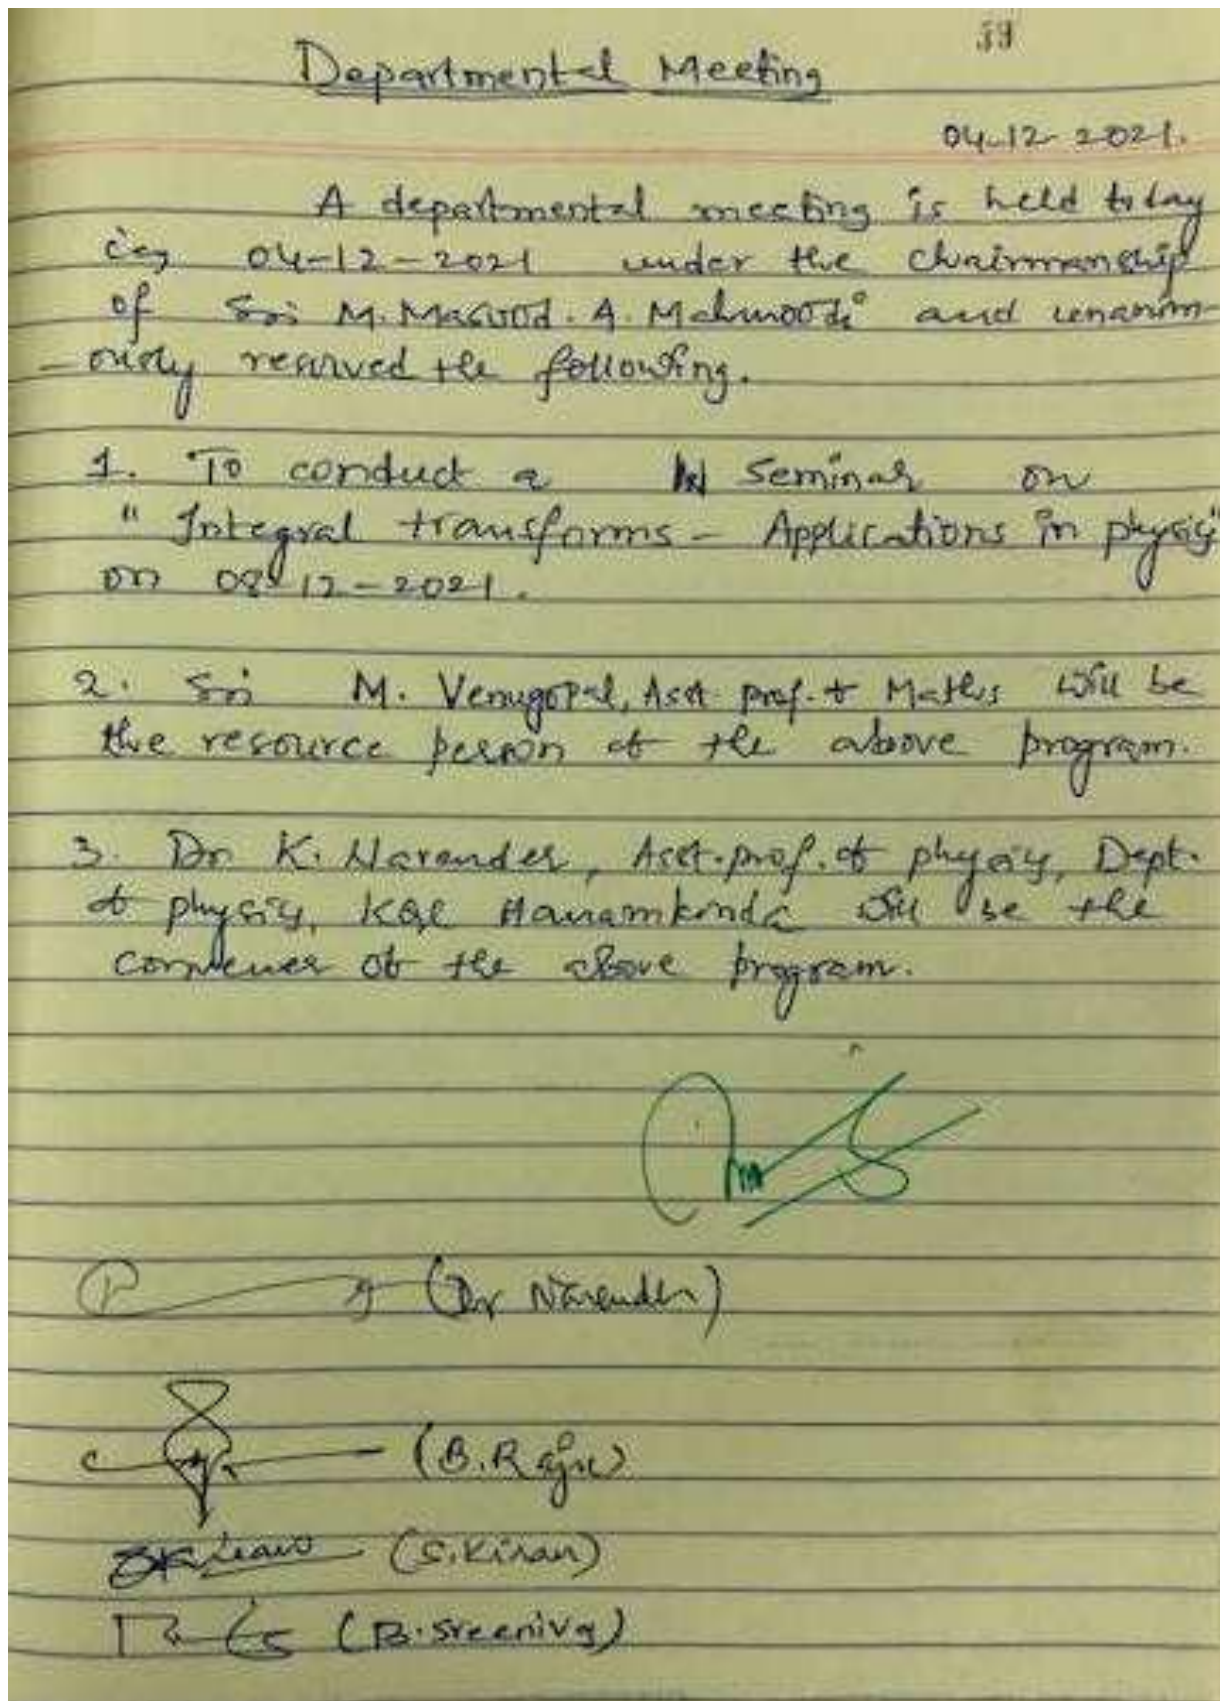 59
Departmental Meeting
04-12-2021.
A departmental meeting is held today
ie, 04-12-2021 under the chairmanship
of Sri M. Masood. A. Mahmoodi and unanim-
-ously resolved the following.
1. To conduct a seminar on
"Integral transforms - Applications in physics"
on 08-12-2021.
2. Sri M. Venugopal, Asst. prof. of Maths will be
the resource person of the above program.
3. Dr K. Narender, Asst. prof. of physics, Dept.
of physics, KGC Hanamkonda will be the
convener of the above program.
(Dr Narender)
(B. Raju)
(S. Kiran)
(B. Sreenivas)